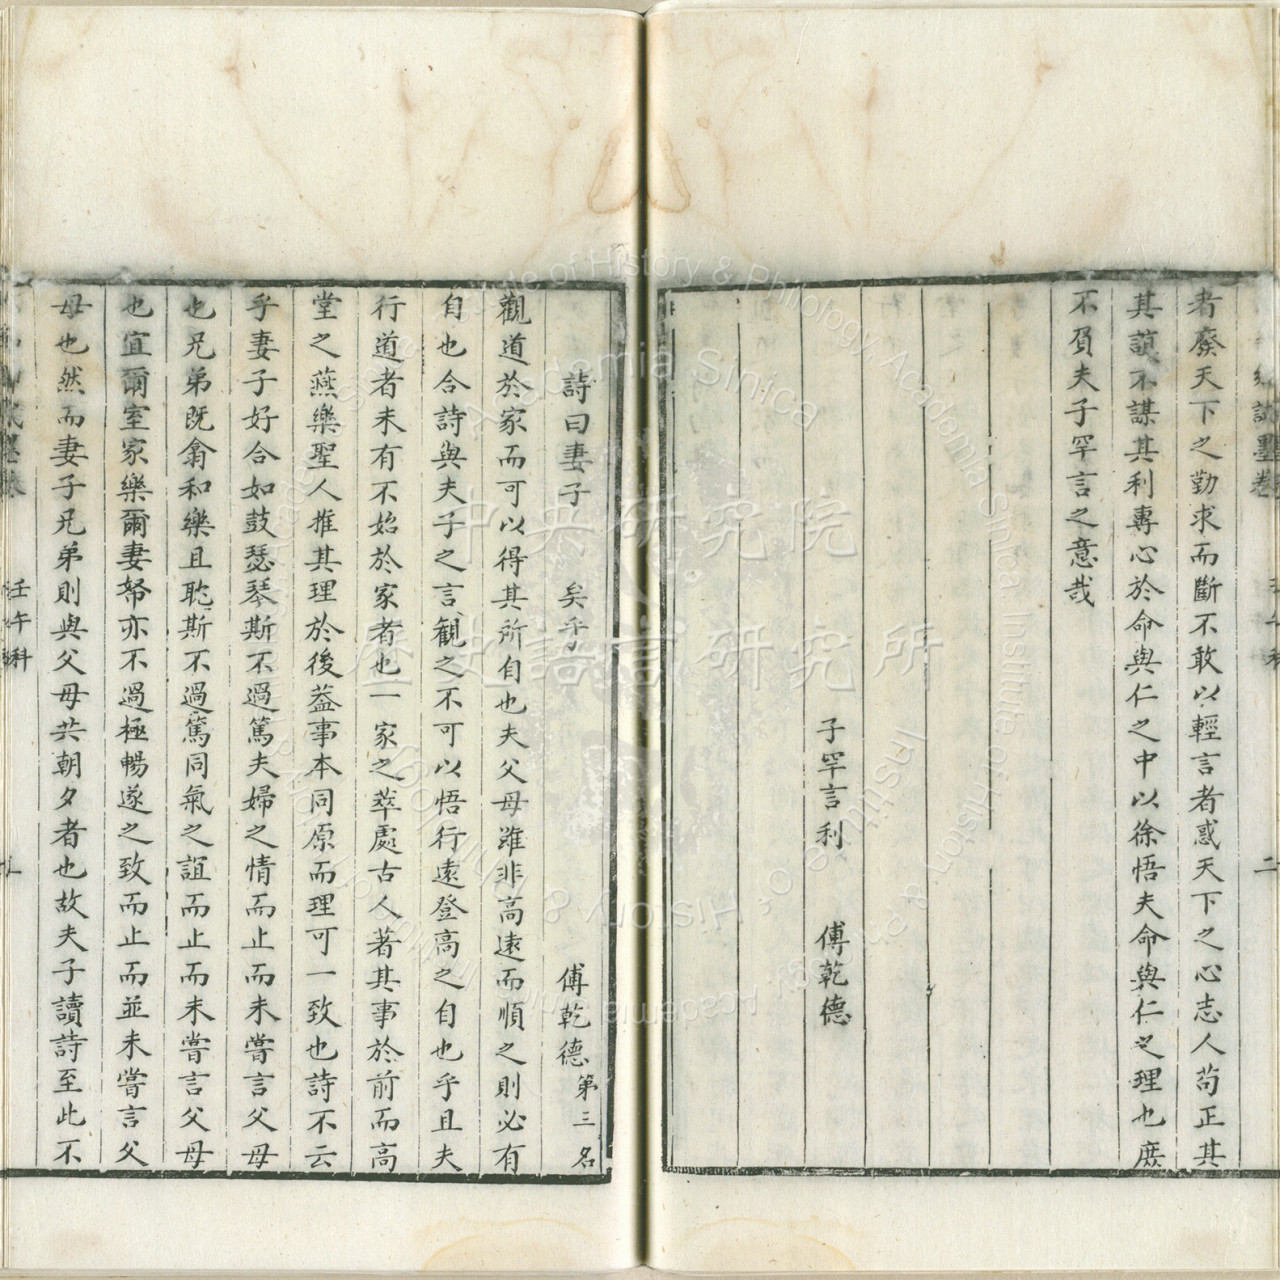 者廢天下之勤求而斷不敢以輕言者惑天下之心志人苟正其
其謨不謀其利專心於命與仁之中以徐悟夫命與仁之理也庶
不負夫子罕言之意哉
子罕言利 傅乾德
詩曰妻子 矣乎 傅乾德 第三名
觀道於家而可以得其所自也夫父母雖非高遠而順之則必有
自也合詩與夫子之言観之不可以悟行遠登高之自也乎且夫
行道者未有不始於家者也一家之萃處古人著其事於前而高
堂之燕樂聖人推其理於後葢事本同原而理可一致也詩不云
乎妻子好合如鼓瑟琴斯不過篤夫婦之情而止而未嘗言父母
也兄弟既翕和樂且耽斯不過篤同氣之誼而止而未嘗言父母
也宜爾室家樂爾妻帑亦不過極暢遂之致而止而並未嘗言父
母也然而妻子兄弟則與父母共朝夕者也故夫子讀詩至此不
壬午科
中央研究院
歷史語言研究所
Institute of History & Philology Academia Sinica